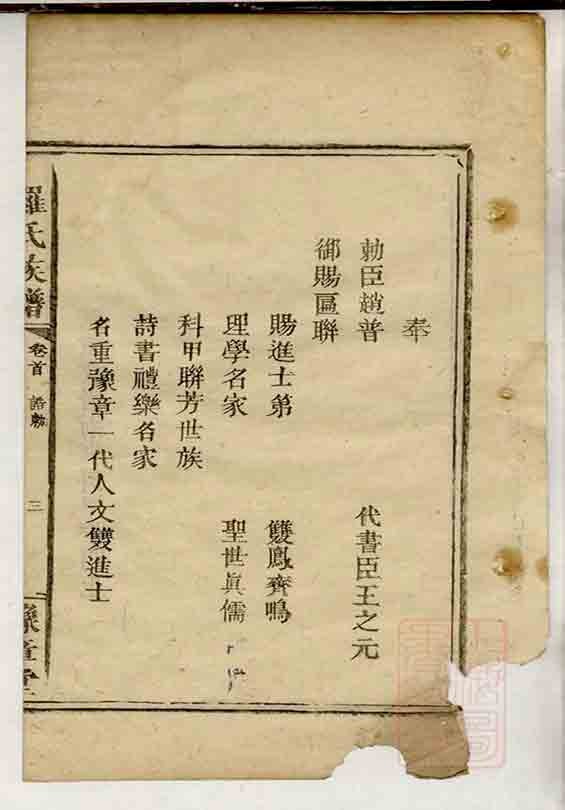 奉
勅臣趙普 代書臣王之元
御賜區聯
賜進士第 雙鳳齊鳴
理學名家 聖世眞儒
科甲聯芳世族
詩書禮樂名家
名重豫章一代人文雙進士
羅氏族譜 卷首 誥勅 三 豫章堂